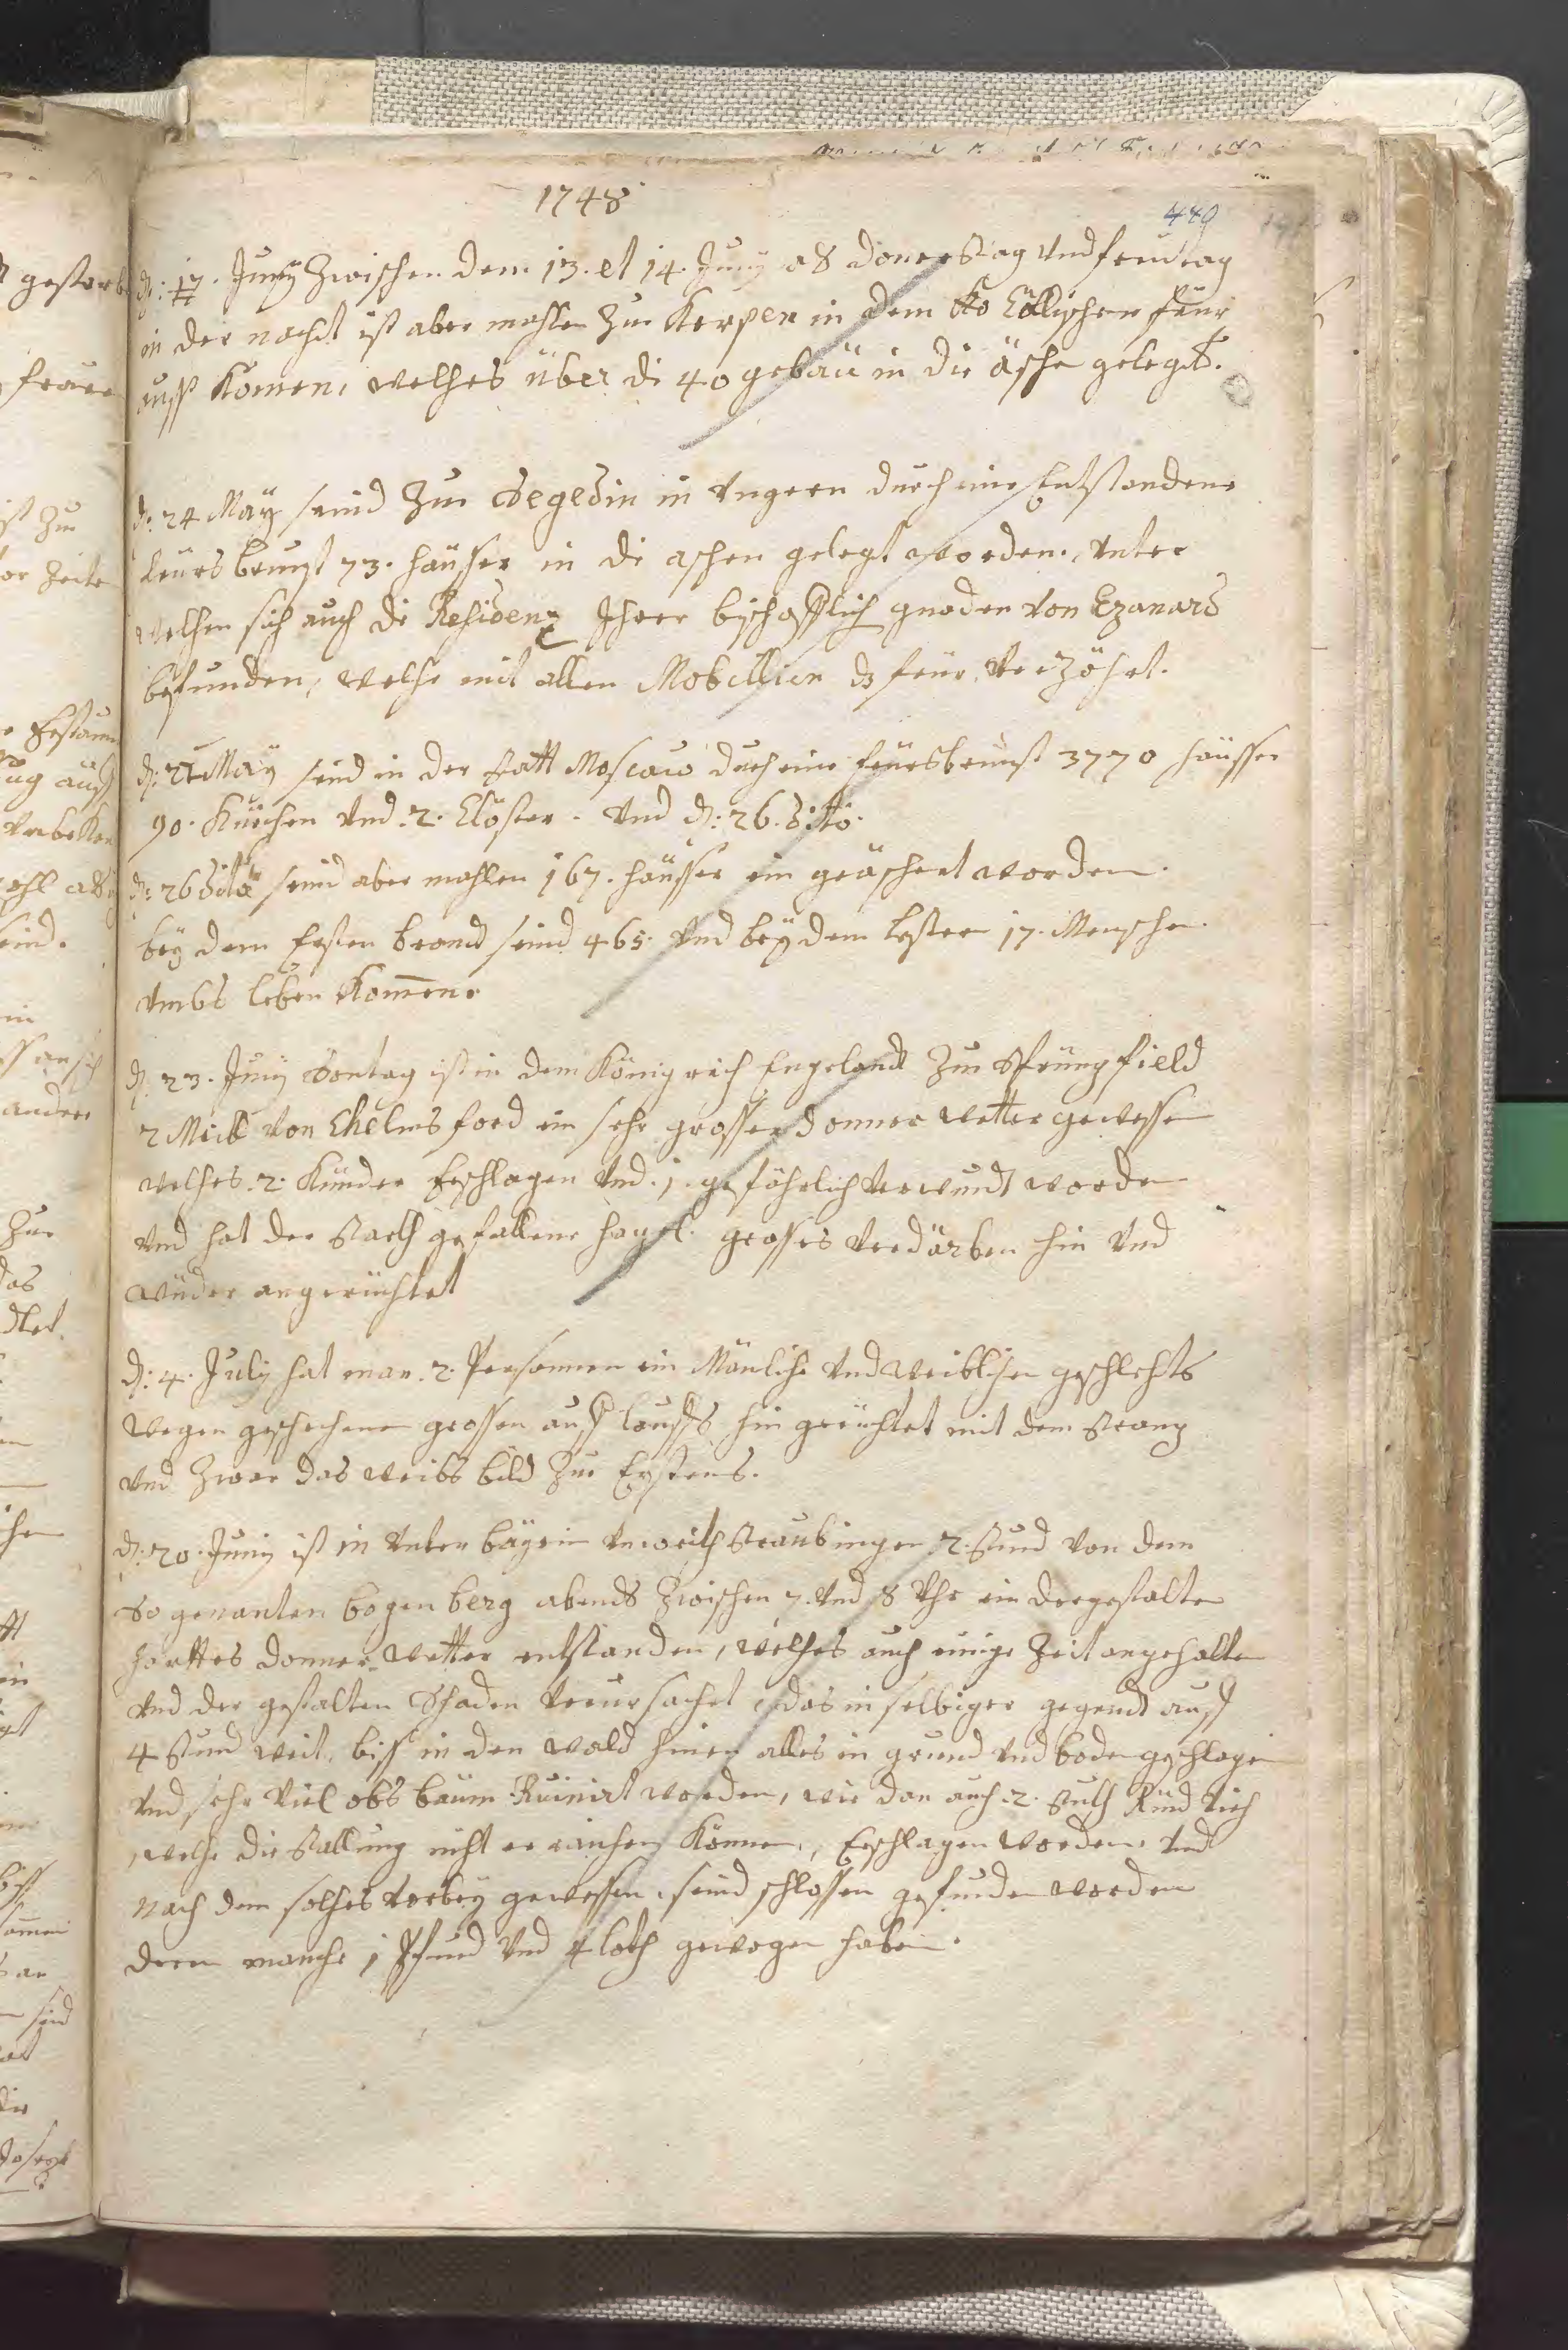 1748
449
d: 17. Junÿ Zwischen dem 13. et 14. Junÿ als donerstag vnd freÿtag
in der nacht ist aber mahlen Zu Kerpen in dem Cöllischen feur
auss Komen, welches über di 40 gebäu in die äsche gelegt.
d: 24 Maÿ seind Zu Segedin in Vngern durch eine Entstandene
feürsbrunst 73. häusser in di aschen gelegt worden, vnter
welchen sich auch di Residenz Jhrer bischofflich gnaden von Czanard
befunden, welche mit allen Mobillien ds feür verzöhrt.
d: Maÿ seind in der statt Moscau durch eine feürsbrunst 3770 häusser
90. Kürchen vnd 2. Clöster. vnd d: 26. ditto.
d: 26 dito seind aber mahlen 167. häusser ein geäschert worden.
beÿ dem Ersten brand seind 465. vnd beÿ dem lesten 17. Menschen
vmbs leben Komen.
d. 23. Junÿ Sontag ist in dem Königreich Engeland Zu Sprüngfield
2 Meill von Chelmsford ein sehr grosses donner wetter gewessen
welches 2. Künder Erschlagen vnd 1. geföhrlich verwundt worden
vnd hat der starck gefallene hagel grosses verdärben hin vnd
wüder angerüchtet
d: 4. July hat man 2. Persohnen ein Mänliche vnd weiblichen geschlechts
wegen geschechenen grossen auss lauffs hin gerüchtet mit dem strang
vnd Zwar das weibs bild Zu Erstens.
d: 20. Junÿ ist in vnter baÿrn vnweith Straubingen 2. stund von dem
So genanten bogen berg abends Zwischen 7. vnd 8 Vhr ein dergestalten
harttes donner wetter entstanden, welches auch einige Zeit angehalten
vnd der gestalten Schaden verursachet, das in selbiger gegendt auff
4 stund weit, biss in den wald hinen alles in grund vnd boden geschlagen
vnd sehr viel obs baüm Ruinirt worden, wie dan auch 2. stuckh Rind vich
welche die stallung nicht erraichen Können, Erschlagen worden, vnd
nach dem solches vorbeÿ gewessen, seind schlossen gefunden worden
deren manche 1 Pfund vnd 4 loth gewogen haben.